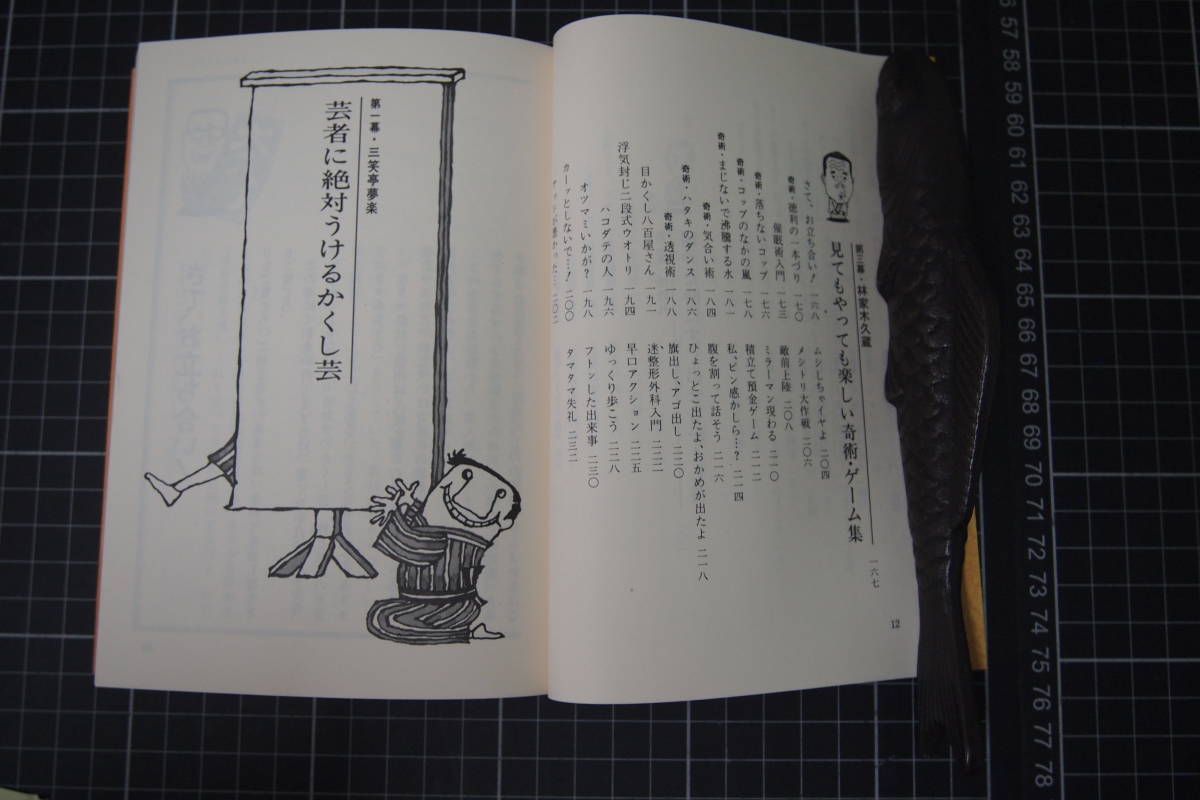 第三幕・林家木久蔵
見てもやっても楽しい奇術・ゲーム集 一六七
さて、お立ち合い! 一六八
奇術・徳利の一本づり 一七〇
催眠術入門 一七三
奇術・落ちないコップ 一七六
奇術・コップのなかの嵐 一七八
奇術・まじないで沸騰する水 一八一
奇術・気合い術 一八四
奇術・ハタキのダンス 一八六
奇術・透視術 一八八
目かくし八百屋さん 一九一
浮気封じ二段式ウオトリ 一九四
ハコダテの人 一九六
オツマミいかが? 一九八
カーッとしないで…! 二〇〇
ムシしちゃイヤよ 二〇四
メシトリ大作戦 二〇六
敵前上陸 二〇八
ミラーマン現わる 二一〇
積立て預金ゲーム 二一二
私、ビン感かしら…? 二一四
腹を割って話そう 二一六
ひょっとこ出たよ、おかめが出たよ 二一八
旗出し、アゴ出し 二二〇
迷整形外科入門 二二二
早口アクション 二二五
ゆっくり歩こう 二二八
フトンした出来事 二三〇
タマタマ失礼 二三二
12
第一幕・三笑亭夢楽
芸者に絶対うけるかくし芸
56
57
58
59
60
61
62
63
64
65
66
67
68
69
70
71
72
73
74
75
76
77
78